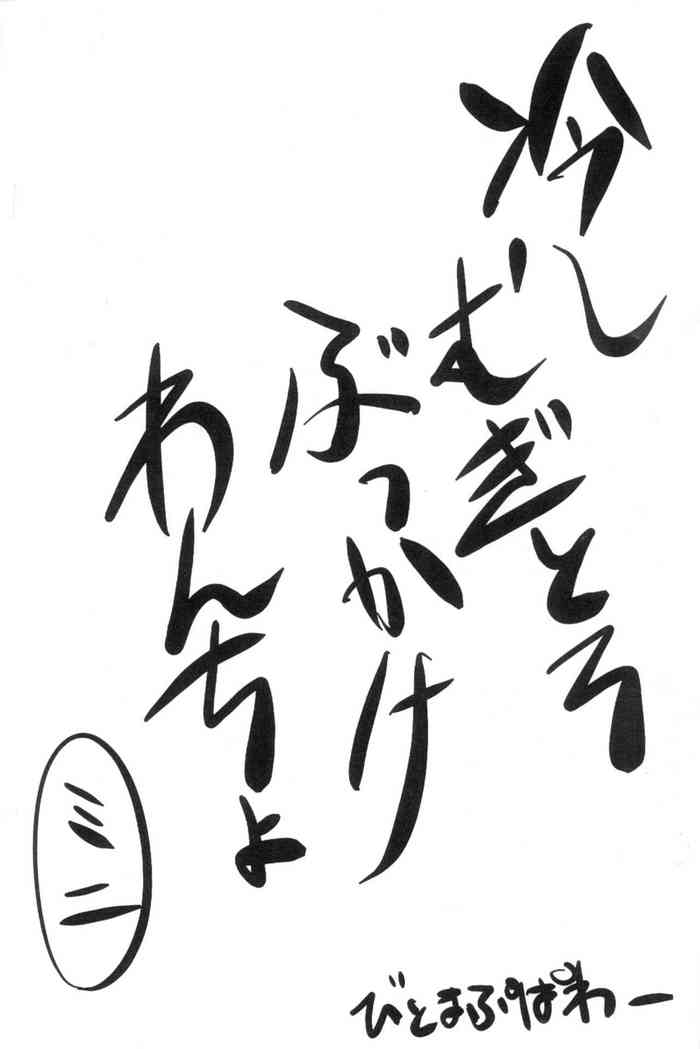 冷し
むぎとろ
ぶっかけ
わんちょ
ミニ
びとまふ's ぱわー